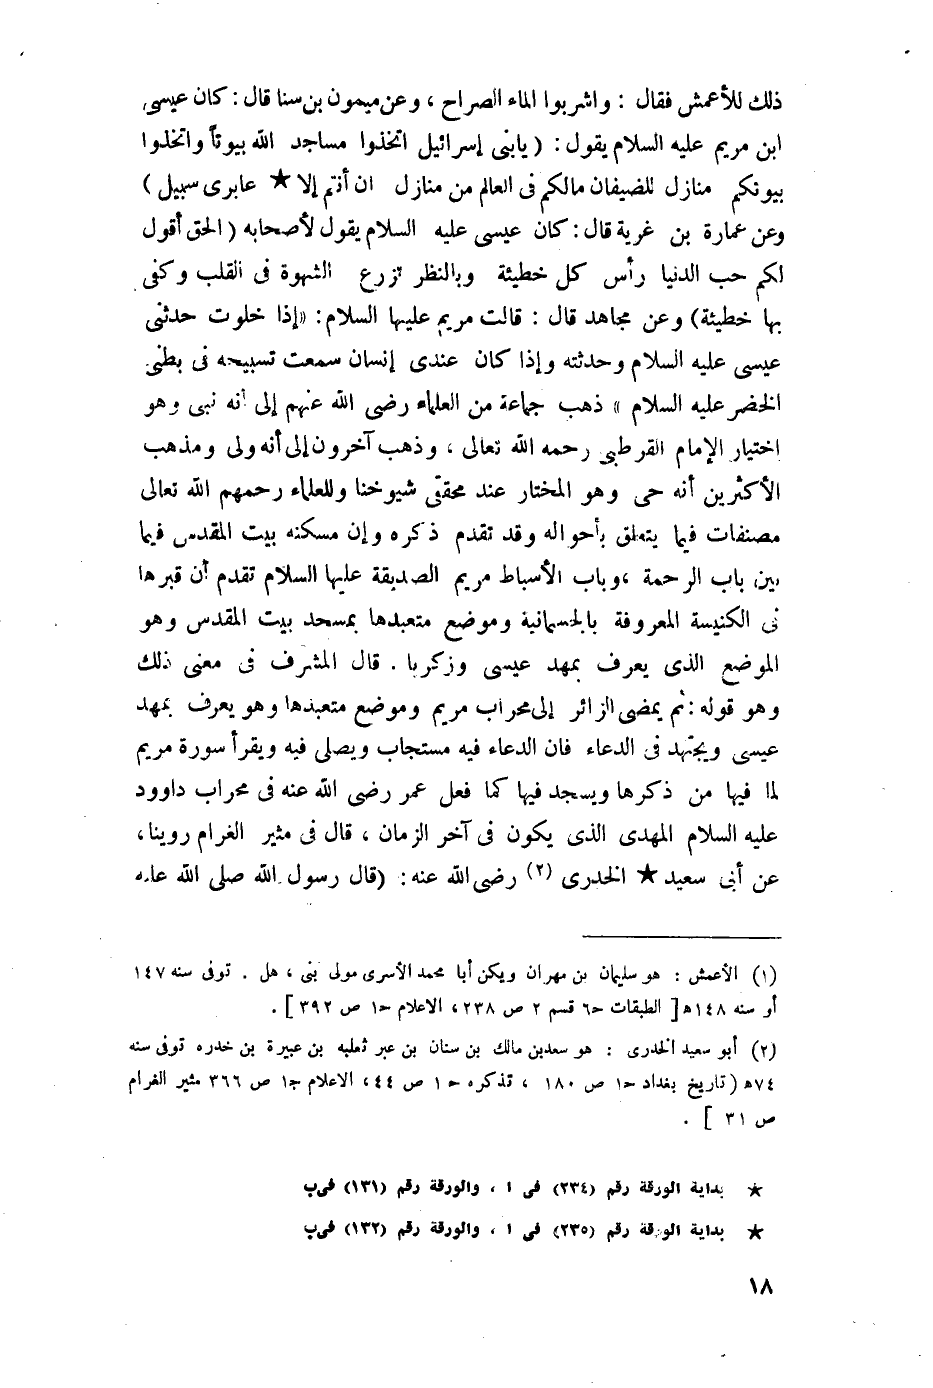 ذلك للأعمش فقال : واشربوا الماء الصراح ، وعن ميمون بن سنا قال : كان عيسى
ابن مريم عليه السلام يقول : ( يابنى إسرائيل اتخذوا مساجد الله بيوتاً واتخذوا
بيوتكم منازل للضيفان مالكم فى العالم من منازل ان أنتم إلا ★ عابرى سبيل )
وعن عمارة بن غربة قال : كان عيسى عليه السلام يقول لأصحابه ( الحق أقول
لكم حب الدنيا رأس كل خطيئة وبالنظر تزرع الشهوة فى القلب وكفى
بها خطيئة) وعن مجاهد قال : قالت مريم عليها السلام : «إذا خلوت حدثنى
عيسى عليه السلام وحدثته وإذا كان عندى إنسان سمعت تسبيحه فى بطنى
الخضر عليه السلام » ذهب جماعة من العلماء رضى الله عنهم إلى أنه نبى وهو
اختيار الإمام القرطبى رحمه الله تعالى ، وذهب آخرون إلى أنه ولى ومذهب
الأكثرين أنه حى وهو المختار عند محققى شيوخنا وللعلماء رحمهم الله تعالى
مصنفات فيما يتعلق بأحواله وقد تقدم ذكره وإن مسكنه بيت المقدس فيما
بين باب الرحمة ،وباب الأسباط مريم الصديقة عليها السلام تقدم أن قبرها
فى الكنيسة المعروفة بالجسمانية وموضع متعبدها بمسجد بيت المقدس وهو
الموضع الذى يعرف بمهد عيسى وزكريا . قال المشرف فى معنى ذلك
وهو قوله : ثم يمضى الزائر إلى محراب مريم وموضع متعبدها وهو يعرف بمهد
عيسى ويجتهد فى الدعاء فان الدعاء فيه مستجاب ويصلى فيه ويقرأ سورة مريم
لما فيها من ذكرها ويسجد فيها كما فعل عمر رضى الله عنه فى محراب داوود
عليه السلام المهدى الذى يكون فى آخر الزمان ، قال فى مثير الغرام روينا ،
عن أبى سعيد ★ الخدرى (٢) رضى الله عنه : (قال رسول الله صلى الله عليه
(١) الأعمش : هو سليمان بن مهران ويكن أبا محمد الأسرى مولى بنى ، هل . توفى سنه ١٤٧
أو سنه ١٤٨ه [ الطبقات ح٦ قسم ٢ ص ٢٣٨، الاعلام ح١ ص ٣٩٢ ] .
(٢) أبو سعيد الخدرى : هو سعدبن مالك بن سنان بن عبر ثعلبه بن عبيرة بن خدره توفى سنه
٧٤ه ( تاريخ بغداد ح١ ص ١٨٠ ، تذكره ح١ ص ٤٤، الاعلام ج١ ص ٣٦٦ مثير الغرام
ص ٣١ ] .
★ بداية الورقة رقم (٢٣٤) فى ا ، والورقة رقم (١٣١) فى ب
★ بداية الورقة رقم (٢٣٥) فى ا ، والورقة رقم (١٣٢) فى ب
١٨